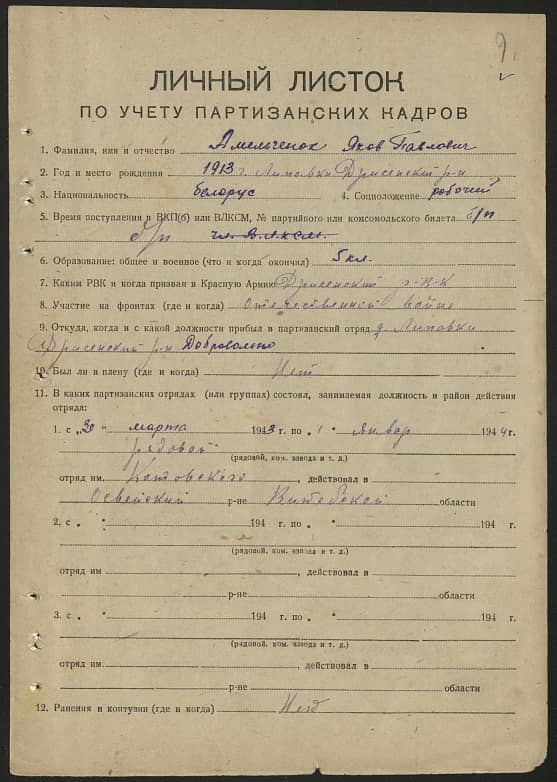 9.
ЛИЧНЫЙ ЛИСТОК
ПО УЧЕТУ ПАРТИЗАНСКИХ КАДРОВ
1. Фамилия, имя и отчество Амельченок Яков Павлович
2. Год и место рождения 1913 г. Липовки Дрисенский р-н
3. Национальность белорус 4. Соцположение рабочий
5. Время поступления в ВКП(б) или ВЛКСМ, № партийного или комсомольского билета б/п
б/п чл. ВЛКСМ.
6. Образование: общее и военное (что и когда окончил) 5 кл.
7. Каким РВК и когда призван в Красную Армию Дрисенский
8. Участие на фронтах (где и когда) Отечественной войне
9. Откуда, когда и с какой должности прибыл в партизанский отряд д. Липовки
Дрисенский р-н Добровольно
10. Был ли в плену (где и когда) Нет
11. В каких партизанских отрядах (или группах) состоял, занимаемая должность и район действия
отряда:
1. с „20" марта 1943 г. по „1" Январ 1944 г.
рядовой
(рядовой, ком. взвода и т. д.)
отряд им. Котовского, действовал в
Освейский р-не Витебской области
2. с „ " 194 г. по „ " 194 г.
(рядовой, ком. взвода и т. д.)
отряд им , действовал в
р-не области
3. с „ " 194 г. по „ " 194 г.
(рядовой, ком. взвода и т. д.)
отряд им. , действовал в
р-не области
12. Ранения и контузии (где и когда) Нет